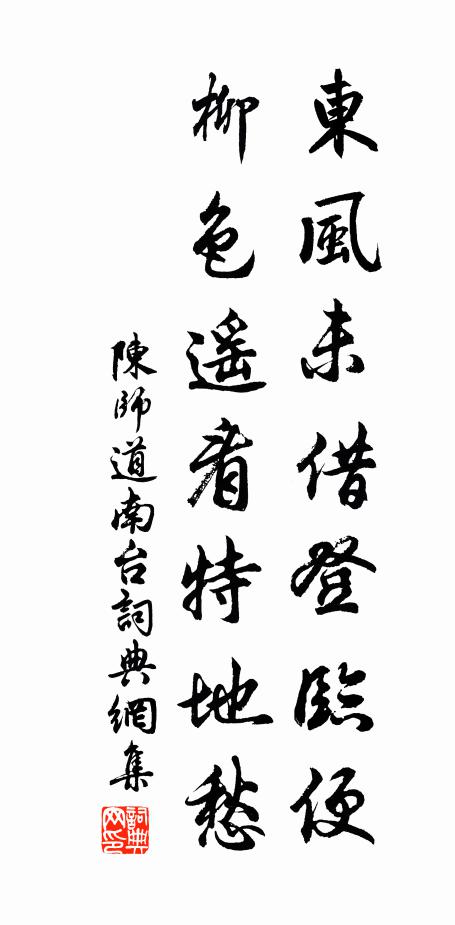 東風未借登臨便
柳色遥看特地愁
陳師道南台詞典網集
詞典
网印